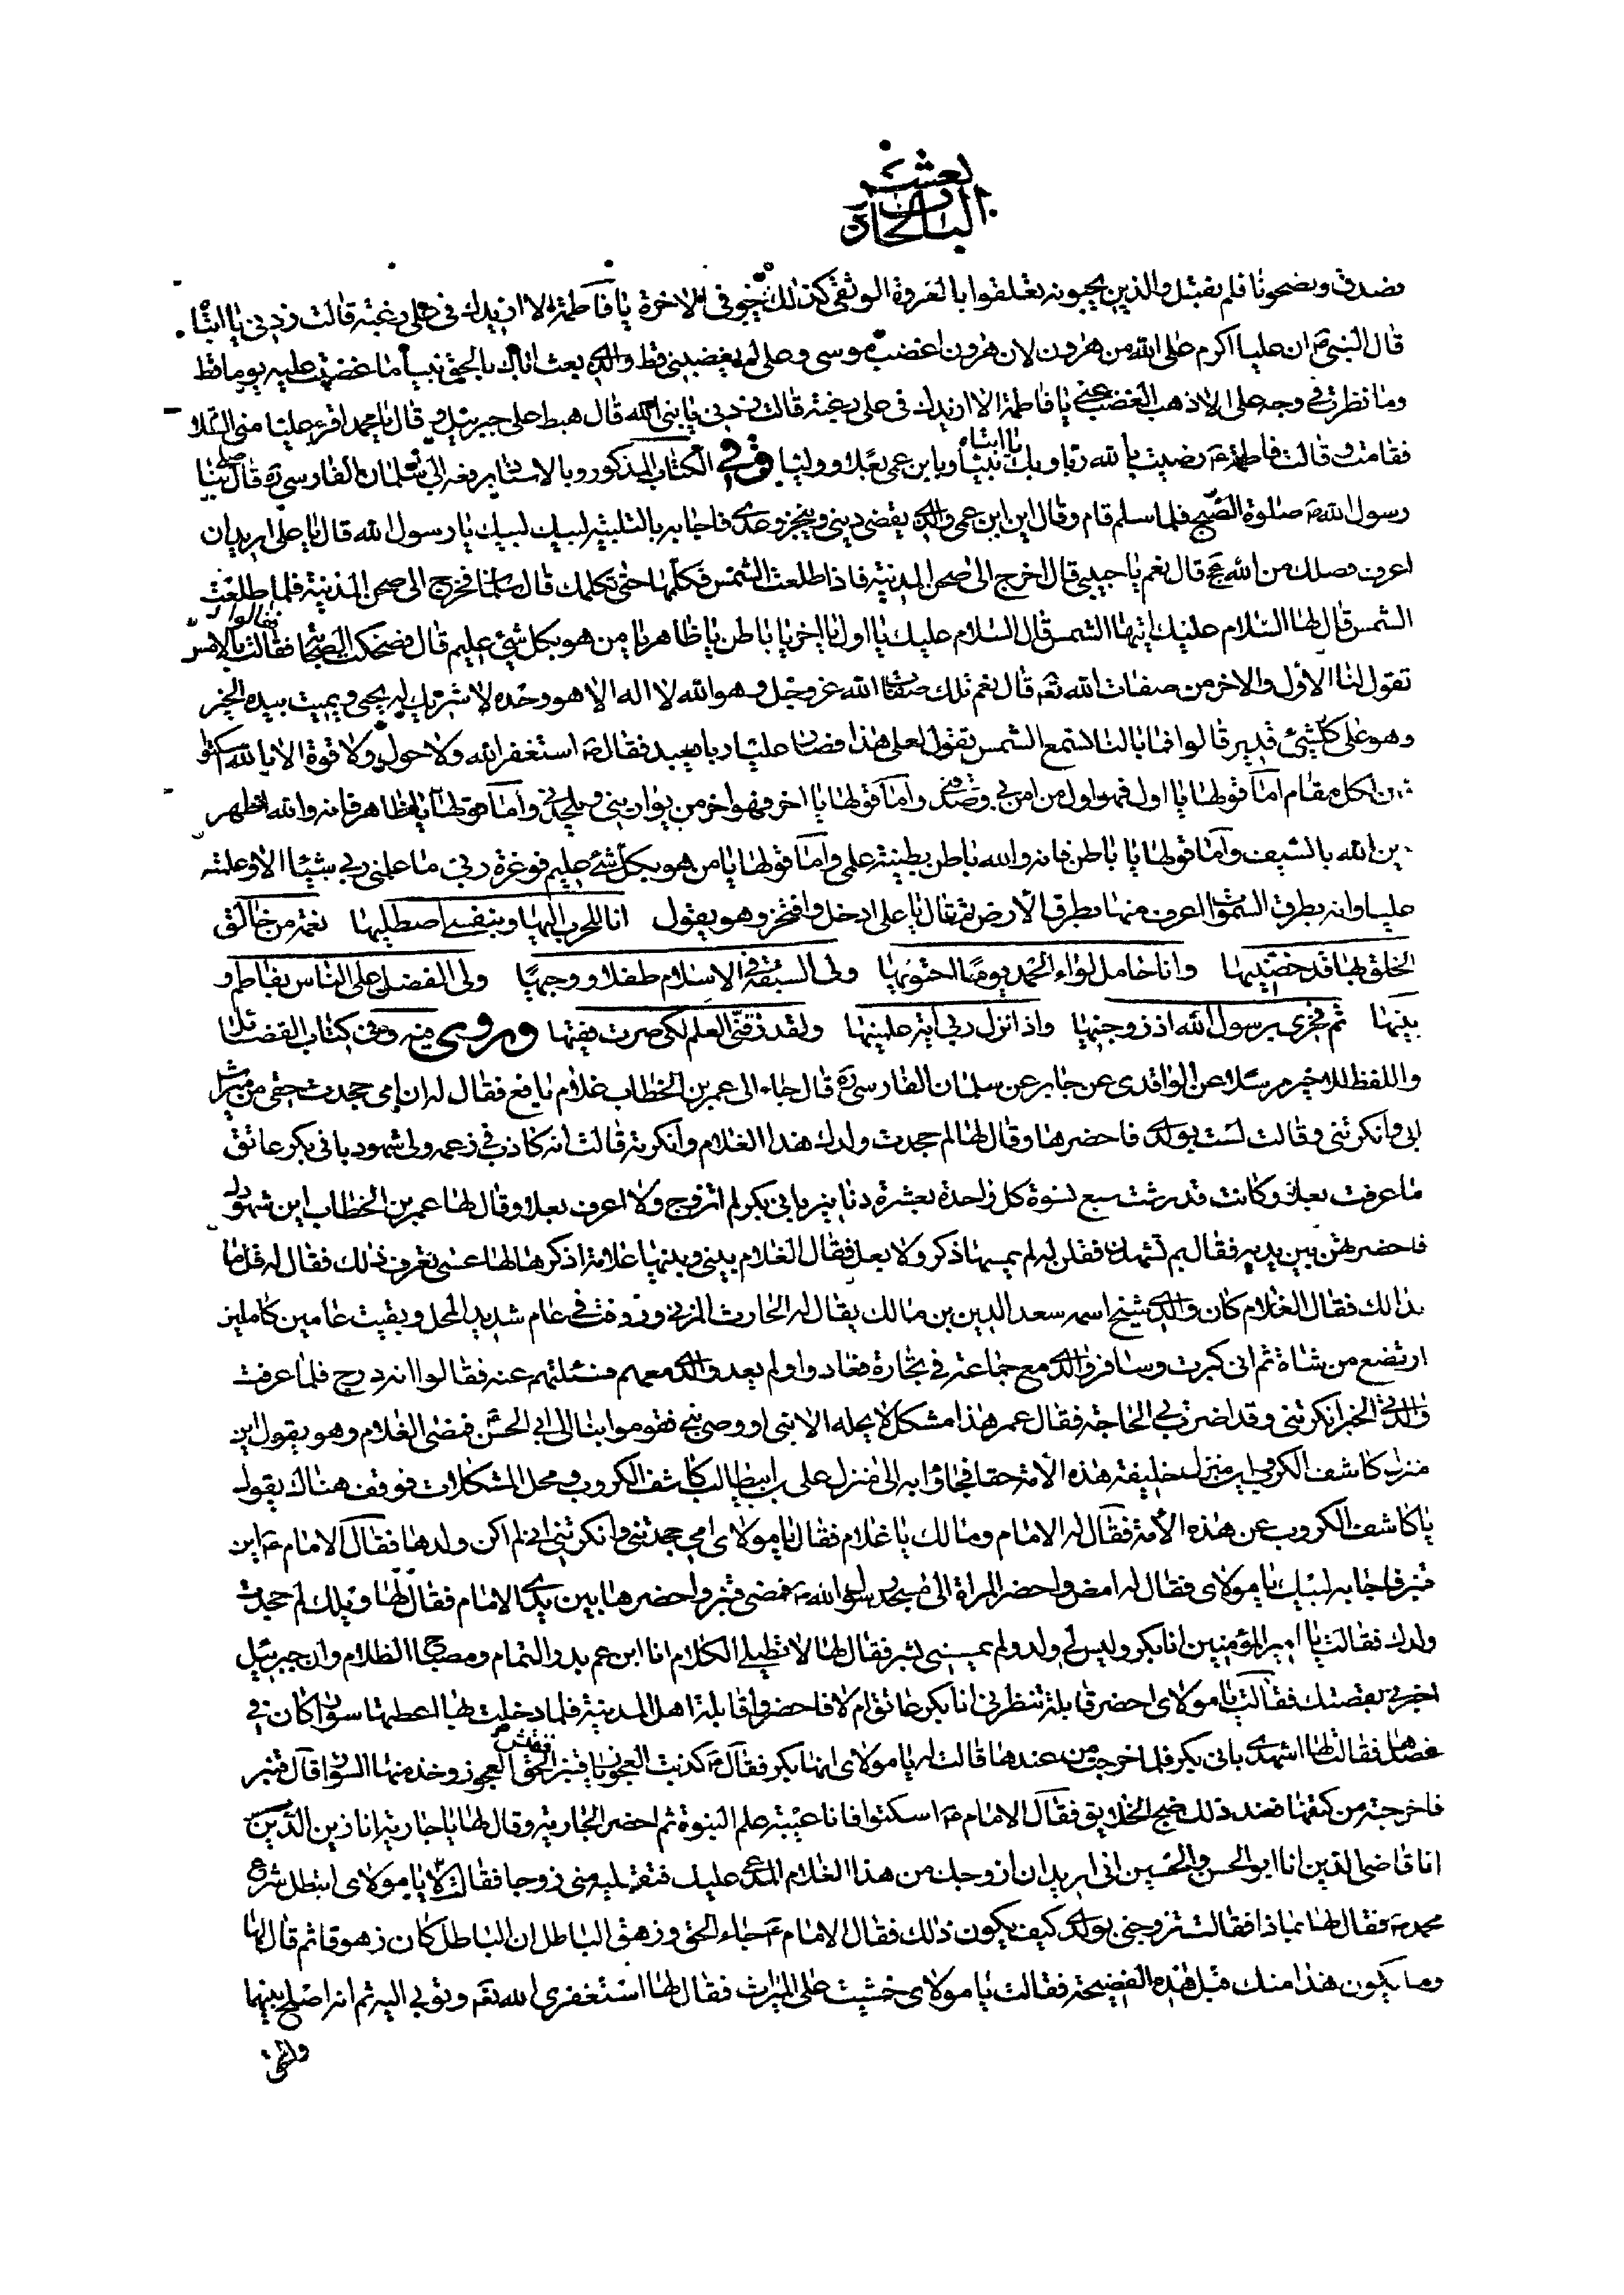 الباب الحادي عشر
بصدق وبضحونا فلم يقبل والذين يحبونه تعلقوا بالعروة الوثقى كذلك في الاخرة يا فاطمة الا ازيدك في علي رغبة قالت زدني يا ابتاه
قال النبي ص ان عليا اكرم على الله من هرون لان هرون اغضب موسى وعلي لم يغضبني قط والذي بعث اباك بالحق نبيا ما غضبت عليه يوما قط
وما نظرت في وجه علي الا ذهب الغضب عني يا فاطمة الا ازيدك في علي رغبة قالت زدني يا نبي الله قال هبط علي جبرئيل وقال يا محمد اقرء عليا مني السلام
فقامت وقالت فاطمة ع رضيت بالله ربا وبك يا ابتاه نبيا وبابن عمي بعلا ووليا وفي الكتاب المذكور وبالاسناد يرفعه الى سلمان الفارسي ره قال صلى بنا
رسول الله ص صلوة الصبح فلما سلم قام وقال اين ابن عمي والذي يقضي ديني وينجز وعدي فاجابه بالتلبية لبيك لبيك يا رسول الله قال يا علي اتريد ان
اعرف فضلك من الله عج قال نعم يا حبيبي قال اخرج الى صحن المدينة فاذا طلعت الشمس فكلمها حتى تكلمك قال سلمان فخرج الى صحن المدينة فلما طلعت
الشمس قال لها السلام عليك ايتها الشمس قال السلام عليك يا اول يا اخر يا باطن يا ظاهر يا من هو بكل شيء عليم قال فضحكت الصحابة فقالوا يا بالامس
تقول لنا الاول والاخر من صفات الله تعه قال نعم تلك صفات الله عز وجل وهو الله لا اله الا هو وحده لا شريك له يحيي ويميت بيده الخير
وهو على كل شيء قدير قالوا فما بالنا لا نستمع الشمس تقول لعلي هذا فصار عليا ربا يعبد فقال ص استغفر الله ولا حول ولا قوة الا بالله اسكتوا
لكل مقام اما قولها يا اول فهو اول من امن بي وصدقني واما قولها يا اخر فهو اخر من يواريني ويلحدني واما قولها يا ظاهر فانه والله اظهر
دين الله بالسيف واما قولها يا باطن فانه والله باطن بطينة علمي واما قولها يا من هو بكل شيء عليم فوعزة ربي ما علمني ربي شيئا الا وعلمته
عليا وانه بطرق السموات اعرف منها بطرق الارض ثم قال يا علي ادخل وافتخر وهو يقول انا للحرب اليها وبنفسي اصطليها نعمة من خالق
الخلق بها قد خصنيها وانا حامل لواء الحمد يوما احتويها ولي السبقة في الاسلام طفلا ووجيها ولي الفضل على الناس بفاطم و
بنيها ثم فخري برسول الله اذ زوجنيها واذا انزل ربي اية علمنيها ولقد زقني العلم لكي صرت فقيها وروي فيه وفي كتاب الفضائل
واللفظ للاخير مرسلا عن الواقدي عن جابر عن سلمان الفارسي ره قال جاء الى عمر بن الخطاب غلام يافع فقال له ان امي جحدت حقي من ميراث
ابي وانكرتني وقالت لست بولدي فاحضرها وقال لها لم جحدت ولدك هذا الغلام وانكرته قالت انه كاذب في زعمه ولي شهود باني بكر عاتق
ما عرفت بعلا وكانت قد رشت سبع نسوة كل واحدة بعشرة دنانير باني بكر لم اتزوج ولا اعرف بعلا وقال لها عمر بن الخطاب اين شهودك
فاحضرتهن بين يديه فقال بم تشهدن فقلن له لم يمسها ذكر ولا بعل فقال الغلام بيني وبينها علامة اذكرها لها عسى تعرف ذلك فقال له قل ما
بدا لك فقال الغلام كان والدي شيخ اسمه سعد الدين بن مالك يقال له الحارث المزني ورزقت في عام شديد المحل وبقيت عامين كاملين
ارتضع من شاة ثم اني كبرت وسافر والدي مع جماعة في تجارة فعادوا ولم يعد والدي معهم فسئلتهم عنه فقالوا انه درج فلما عرفت
والدتي الخبر انكرتني وقد اضرت بي الحاجة فقال عمر هذا مشكل لا يحله الا نبي او وصي نبي فقوموا بنا الى ابي الحسن فمضى الغلام وهو يقول اين
منزل كاشف الكروب اين منزل خليفة هذه الامة حقا فجاؤا به الى منزل علي بن ابيطالب كاشف الكروب ومحل المشكلات فوقف هناك يقول
يا كاشف الكروب عن هذه الامة فقال له الامام وما لك يا غلام فقال يا مولاي امي جحدتني وانكرتني اني لم اكن ولدها فقال الامام ع اين
قنبر فاجابه لبيك يا مولاي فقال له امض واحضر المراة الى مسجد رسول الله ص فمضى قنبر واحضرها بين يدي الامام فقال لها ويلك لم جحدت
ولدك فقالت يا امير المؤمنين انا بكر وليس لي ولد ولم يمسني بشر فقال لها لا تطيلي الكلام انا ابن عم بدر التمام ومصباح الظلام وان جبرئيل
اخبرني بقصتك فقالت يا مولاي احضر قابلة تنظرني انا بكر عاتق ام لا فاحضروا قابلة اهل المدينة فلما دخلت بها اعطتها سوارا كان في
عضدها فقالت لها اشهدي باني بكر فلما خرجت من عندها قالت له يا مولاي انها بكر فقال ع كذبت العجوز يا قنبر فتش العجوز وخذ منها السوار قال قنبر
فاخرجته من كتفها فعند ذلك ضج الخلايق فقال الامام ع اسكتوا فانا عيبة علم النبوة ثم احضر الجارية وقال لها يا جارية انا زين الدين
انا قاضي الدين انا ابو الحسن والحسين اني اريد ان ازوجك من هذا الغلام المدعي عليك فتقبليه مني زوجا فقالت لا يا مولاي اتبطل شرع
محمد ص فقال لها بماذا فقالت تزوجني بولدي كيف يكون ذلك فقال الامام ع جاء الحق وزهق الباطل ان الباطل كان زهوقا ثم قال لها
وما يكون هذا منك قبل هذه الفضيحة فقالت يا مولاي خشيت على الميراث فقال لها استغفري الله تعه وتوبي اليه ثم انه اصلح بينهما